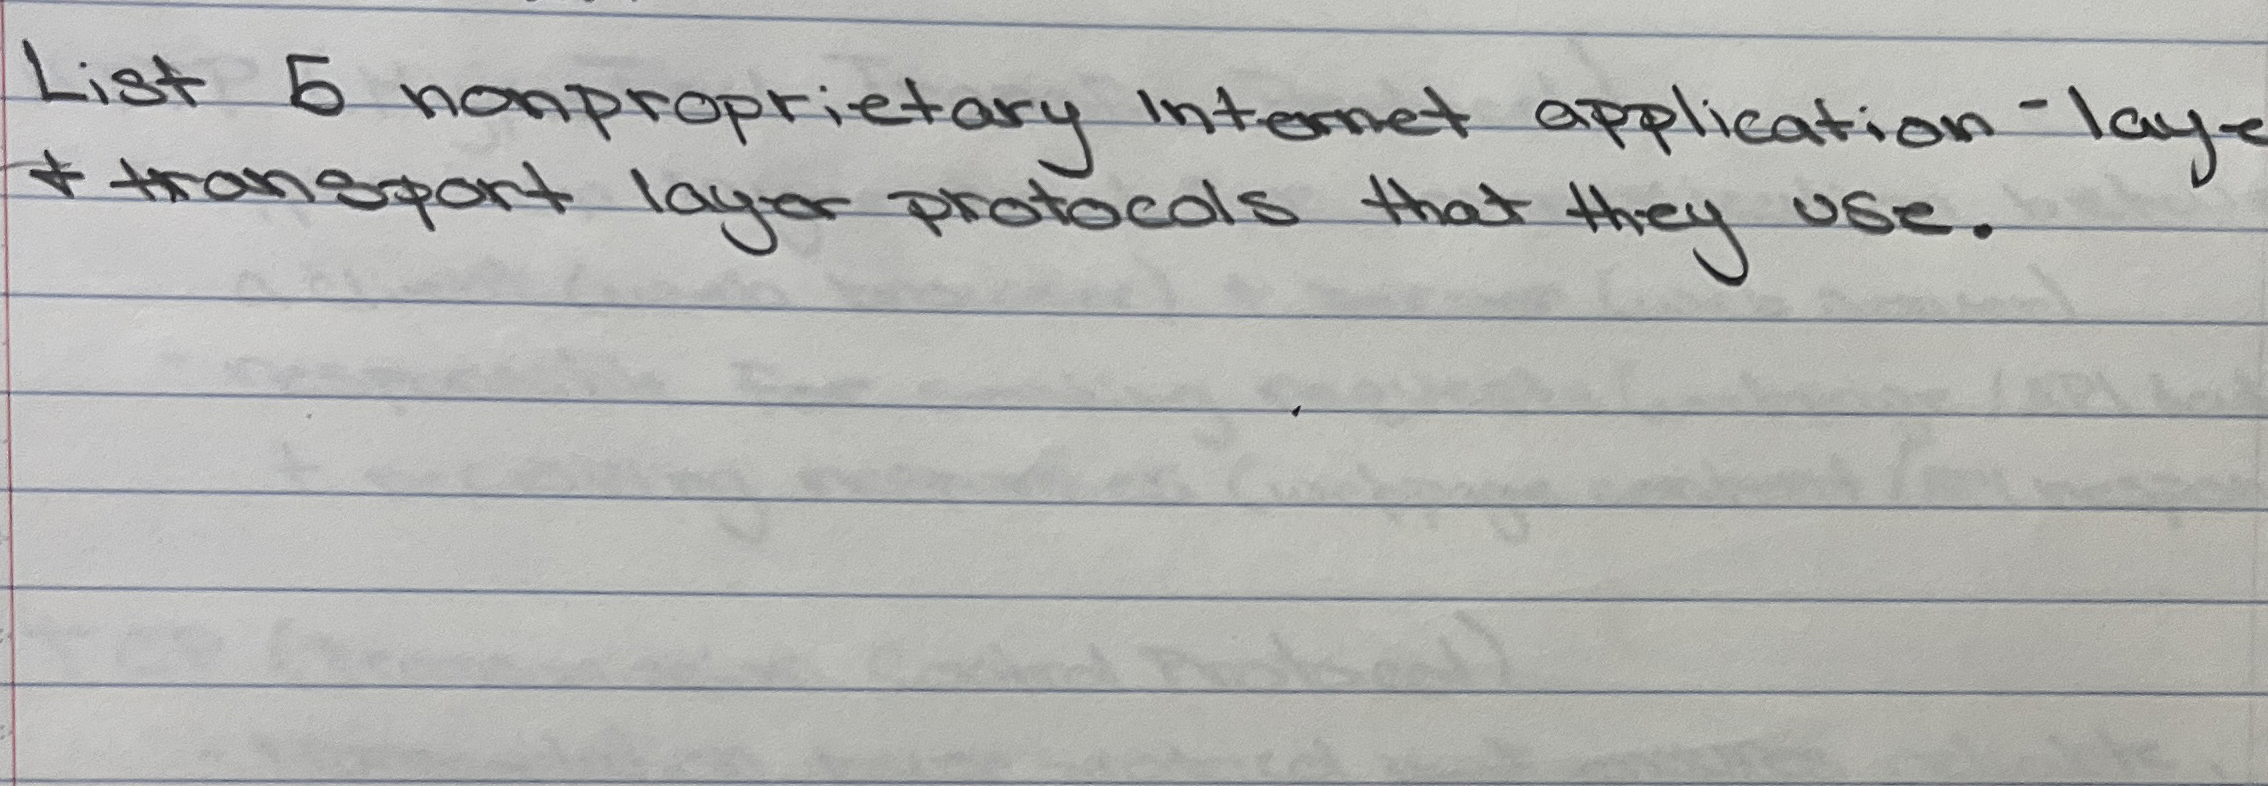 List 5 nonproprietary Internet application-laye
+ transport layer protocols that they use.